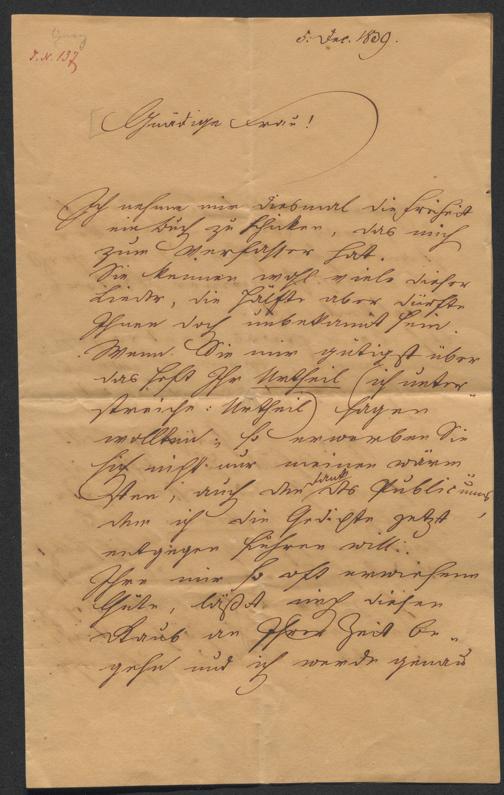 I.N. 137
5. Dec. 1889.
Gnädige Frau!
Ich nehme mir diesmal die Freiheit
ein Buch zu schicken, das mich
zum Verfasser hat.
Sie kennen wohl viele dieser
Lieder, die Hälfte aber dürfte
Ihnen doch unbekannt sein.
Wenn Sie mir gütigst über
das Heft Ihr Urtheil (ich unter
streiche: Urtheil) sagen
wollten, so erwerben Sie
sich nicht nur meinen wärm
sten, auch den Dank des Publicums,
dem ich die Gedichte jetzt
entgegen führen will.
Ihre mir so oft erwiesene
Güte, läßt mich diesen
Raub an Ihrer Zeit be-
gehn und ich werde genau